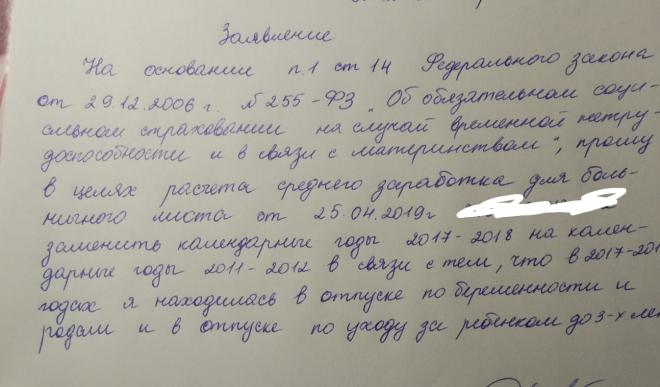 Заявление
На основании п.1 ст 14 Федерального закона
от 29.12.2006 г. №255-ФЗ „Об обязательном соци-
альном страховании на случай временной нетру-
доспособности и в связи с материнством“, прошу
в целях расчета среднего заработка для боль-
ничного листа от 25.04.2019г
заменить календарные годы 2017-2018 на кален-
дарные годы 2011-2012 в связи с тем, что в 2017-201
годах я находилась в отпуске по беременности и
родам и в отпуске по уходу за ребёнком до 3-х ле